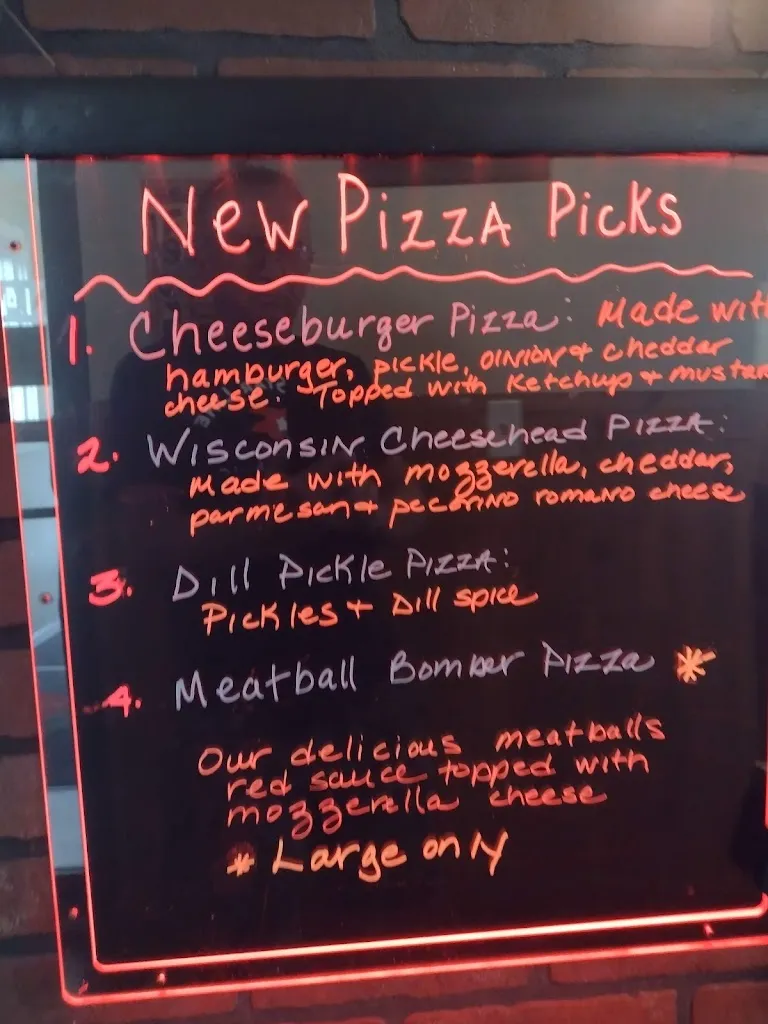 New Pizza Picks
1. Cheeseburger Pizza: Made with
hamburger, pickle, oinion + cheddar
cheese. Topped with Ketchup + mustar
2. Wisconsin Cheesehead Pizza:
Made with mozzerella, cheddar,
parmesan + pecorino romano cheese
3. Dill Pickle Pizza:
Pickles + Dill spice
4. Meatball Bomber Pizza *
Our delicious meatballs
red sauce topped with
mozzerella cheese
* Large only